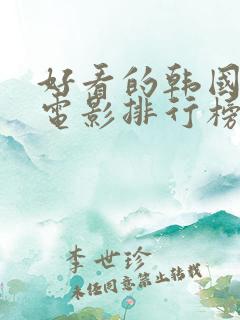 好看的韩國
電影排行榜
李世珍
未经同意禁止转载